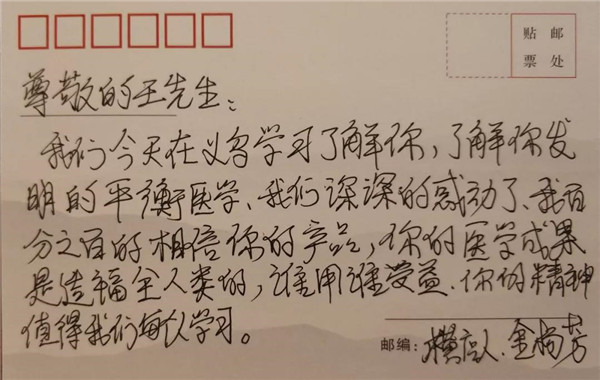 贴 邮
票 处
尊敬的王先生:
我们今天在义乌学习了解你,了解你发
明的平衡医学、我们深深的感动了、我百
分之百的相信你的产品,你的医学成果
是造福全人类的,谁用谁受益.你的精神
值得我们每人学习。
邮编: 横店人.金